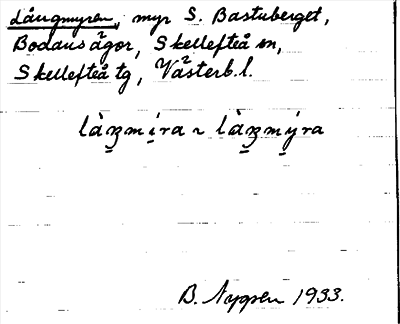 Långmyren, myr S. Bastuberget,
Bodans ägor, Skellefteå sn,
Skellefteå tg, Västerb. l.
làŋmíra ~ làŋmýra
1933.